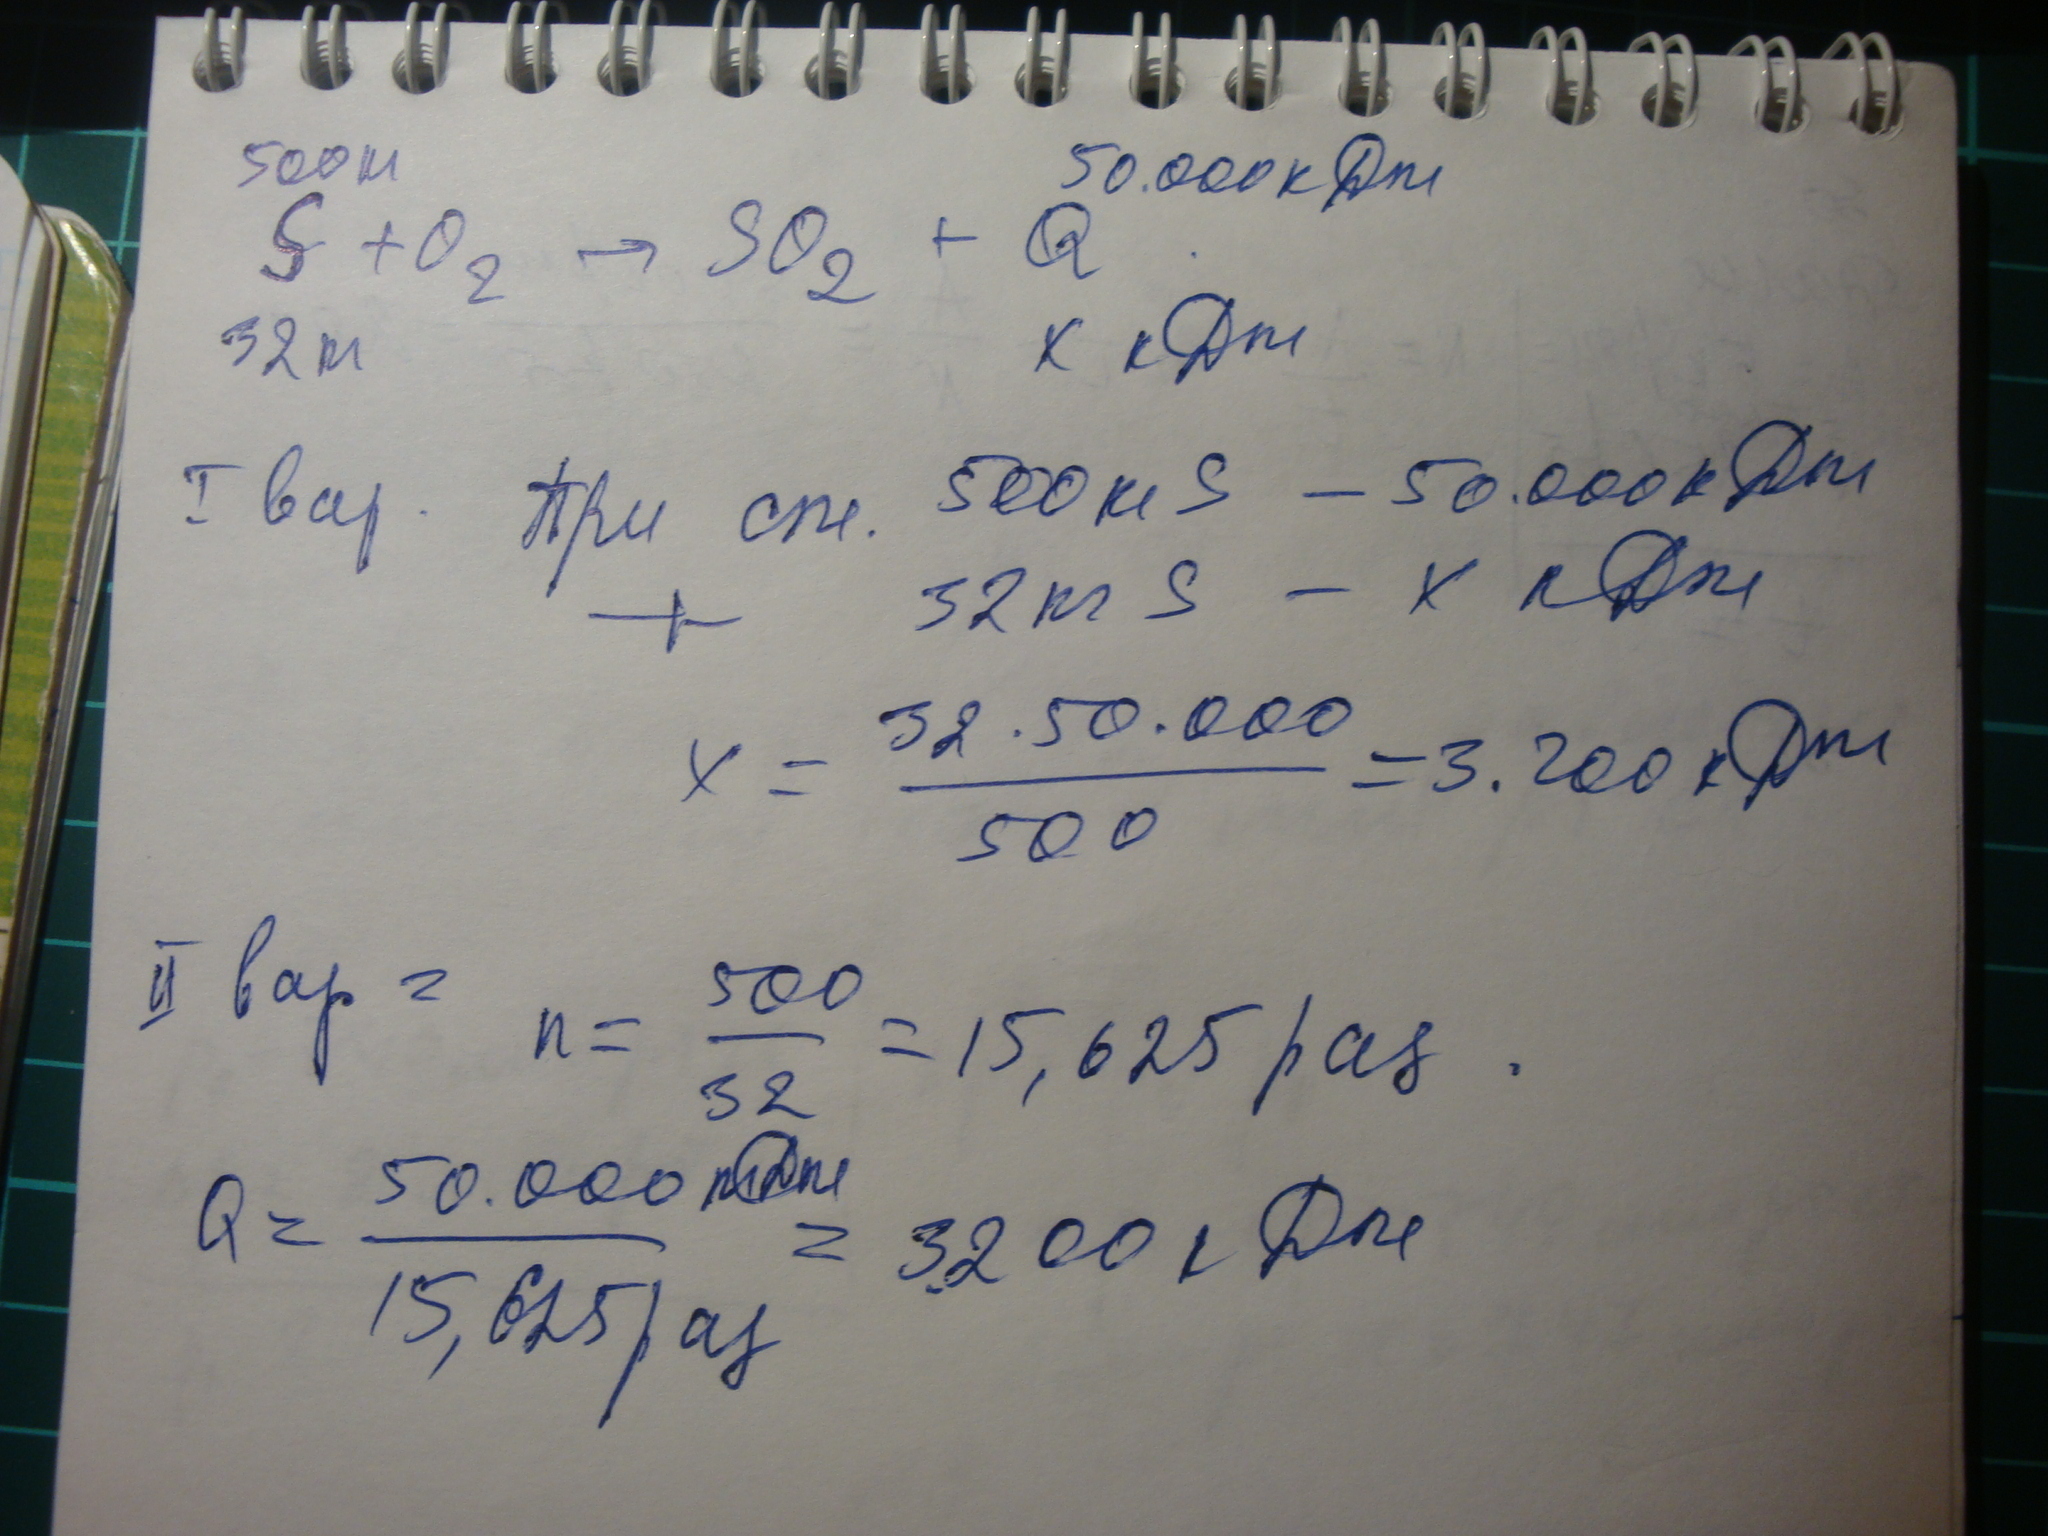 500кг 50.000кДж
S + O2 → SO2 + Q
32кг x кДж
I вар. При сж. 500кг S – 50.000кДж
32кг S – x кДж
x = 32·50.000 / 500 = 3.200кДж
II вар = n = 500 / 32 = 15,625 раз.
Q = 50.000кДж / 15,625 раз = 3200кДж